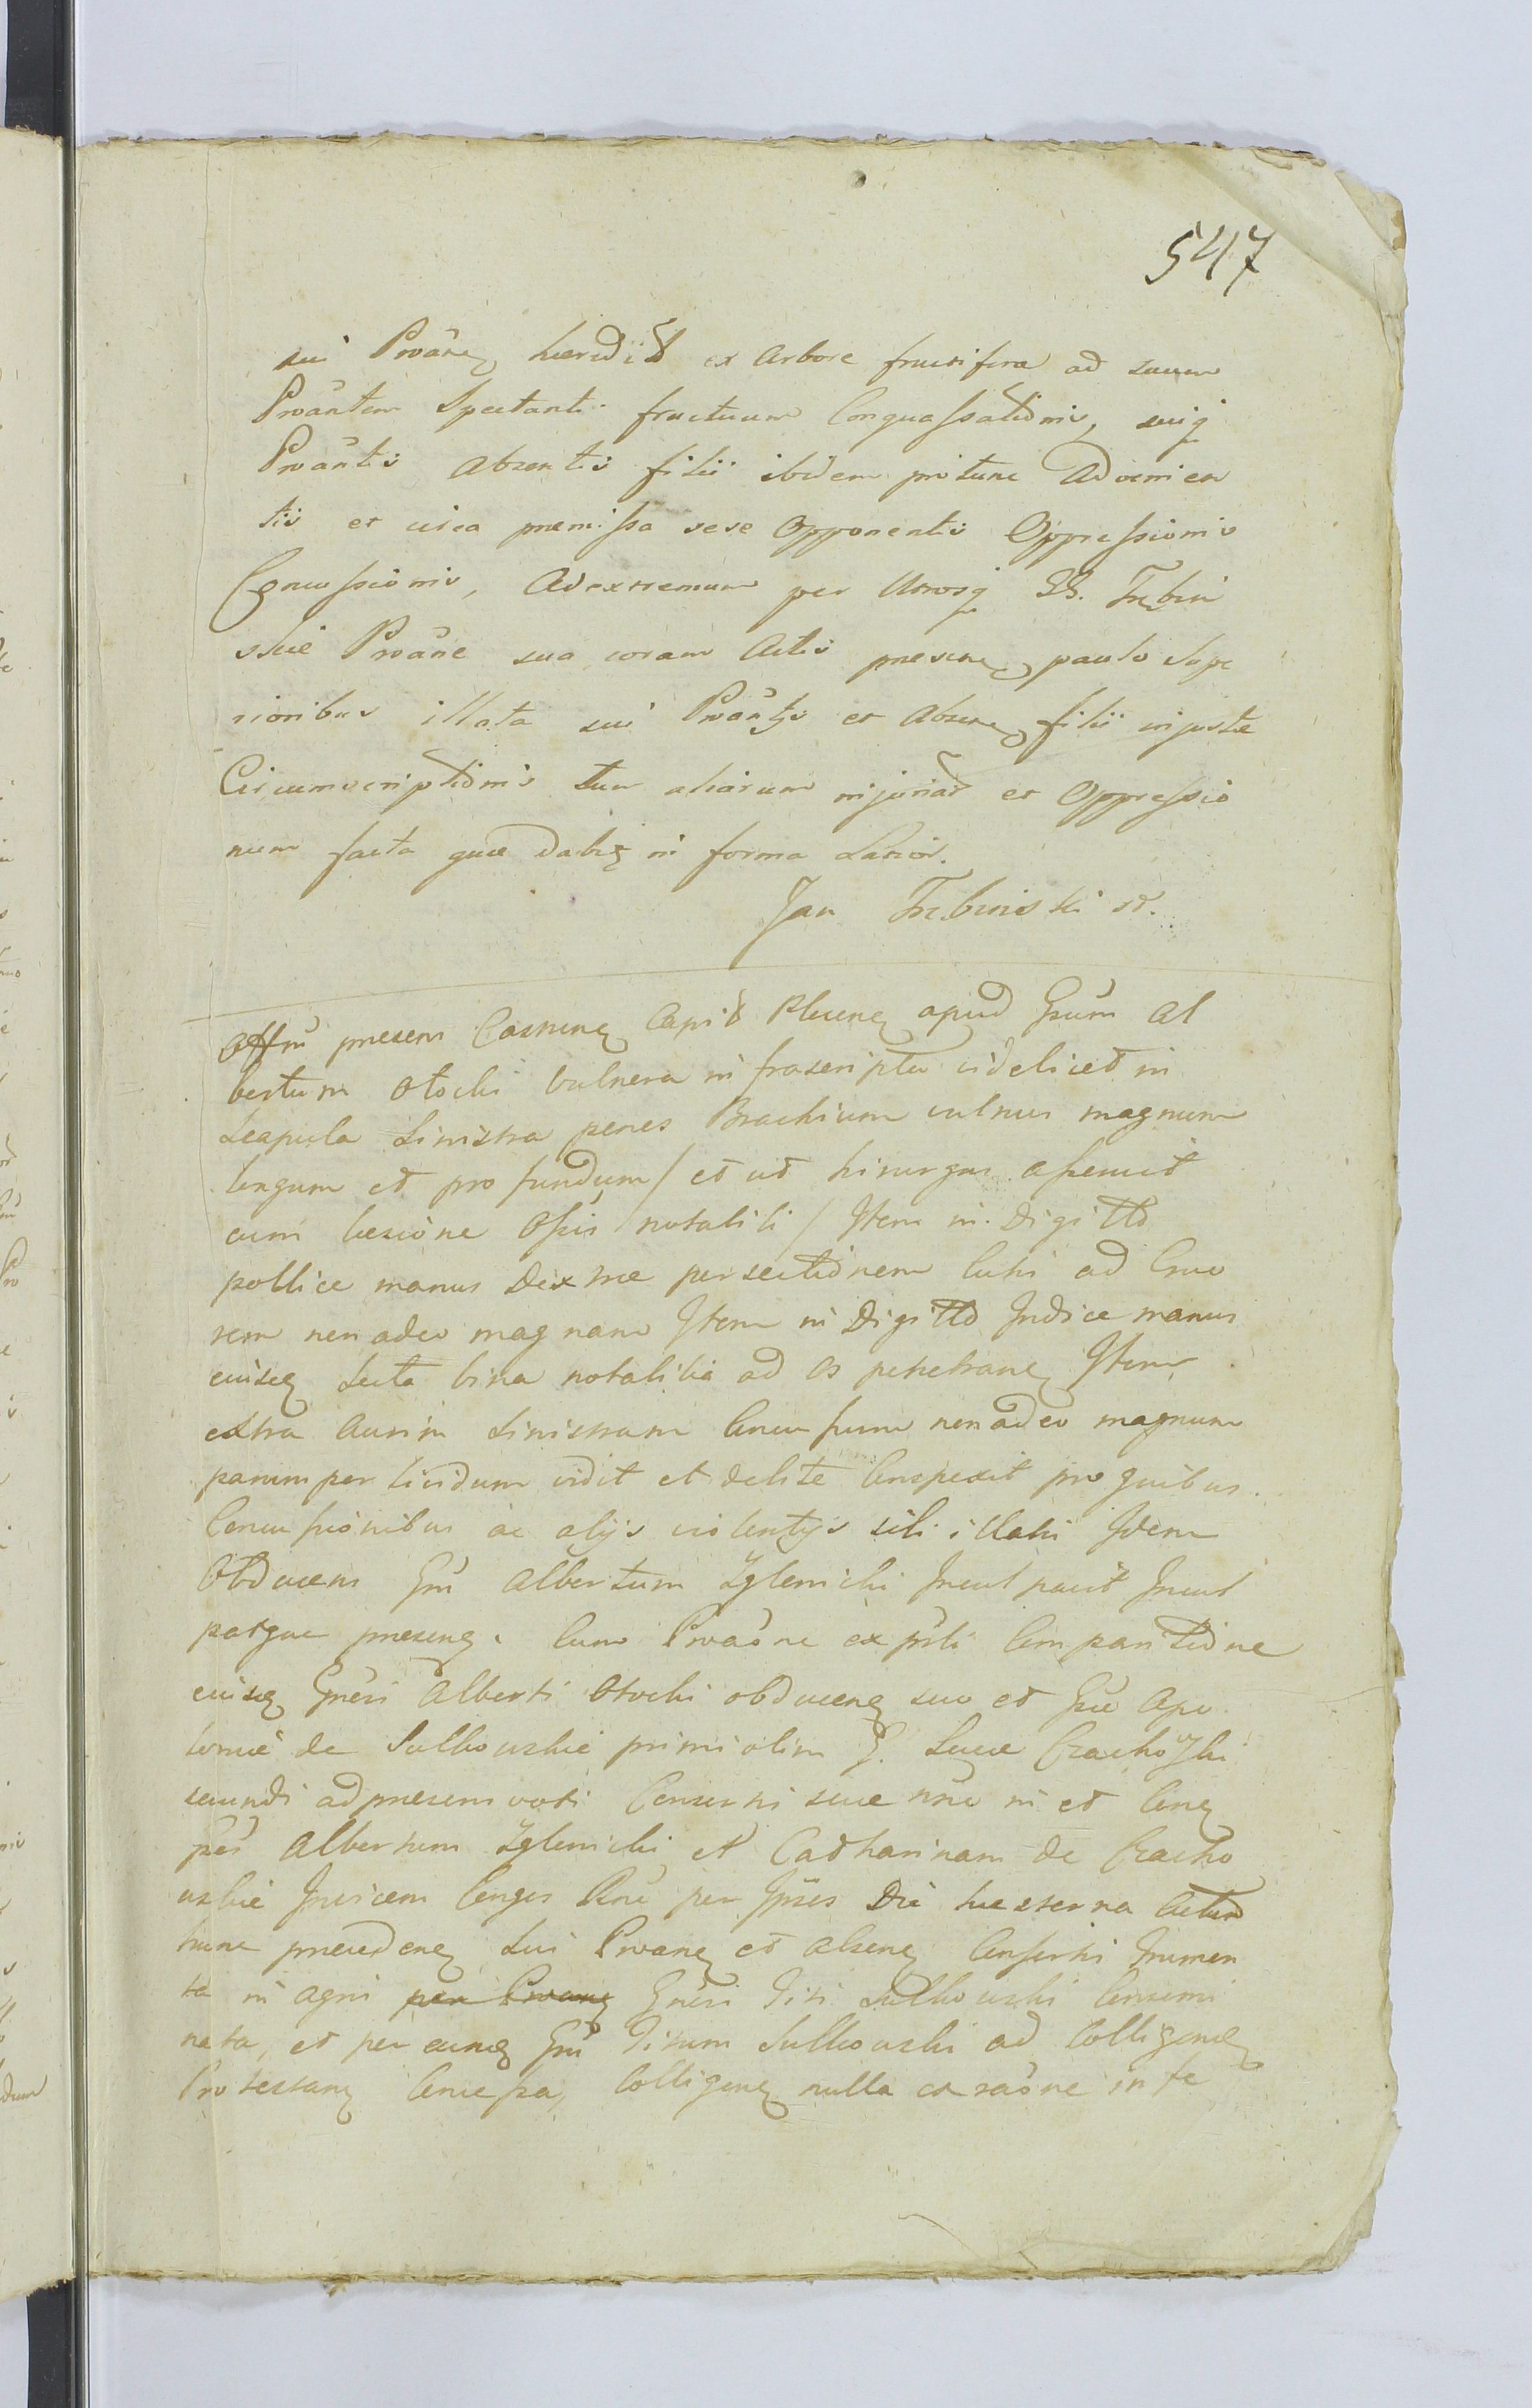 547
sui Proãne hæredit ex Arbore fructifera ad suum
Proãntem Spectanti fructuum Conquassationis, suiq
Proãntis Absentis filii ibidem protunc Advenien
tis et circa premissa sese Opponentis Oppressionis
Concussionis, Adextremum per Utrosq GG. Trębin
skie Proãne sua coram Actis presene paulo supe
rioribus illata sui Proãntis et Absene filii injustæ
Circumscriptionis tum aliarum injuriar et Oppressio
num facta quæ dabiq in forma Latior.
Jan Trębinski
Offm presens Castrene Capit Plocene apud Gsum Al
bertum Otocki vulnera infrascripta videlicet in
Scapula Sinistra penes Brachium vulnus magnum
longum et profundum / et ut hirurgus aperuit
cum læsione Ossis notabili / Item in Digitto
pollice manus Dextræ persectionem Cutis ad Cruo
rem non adeo magnam Item in Digitto Indice manus
eiusq Secta bina notabilia ad os penetrane Item
extra Aurim Sinistram Concussum non adeo magnum
parumper lividum vidit et debite Conspexit pro quibus
Concussionibus ac alijs violentijs sibi illatis Idem
Obducens Gm Albertum Zglenicki Inculpavit Incul
patque presene. Cum Proaõne ex psli Comparitione
eiusq Gnesi Alberti Otocki obducene suo et Gse Apo
loniæ de Sulkowskie primi olim G. Lucæ Czachoski
secundi adpresens voti Consortis suæ nne in et Cone
per Albertum Zglenicki et Catharinam de Czacho
wskie Invicem Conges Rne per Ipses Die hesterna Actum
hunc precedene Sui Proane et absene Consortis frumen
ta in agris per Proane Gnesi Titi Sulkowski Consemi
nata, et per eume Gm Titum Sulkowski ad Colligene
Protestane Concessa, Colligene nulla ex raõne infe